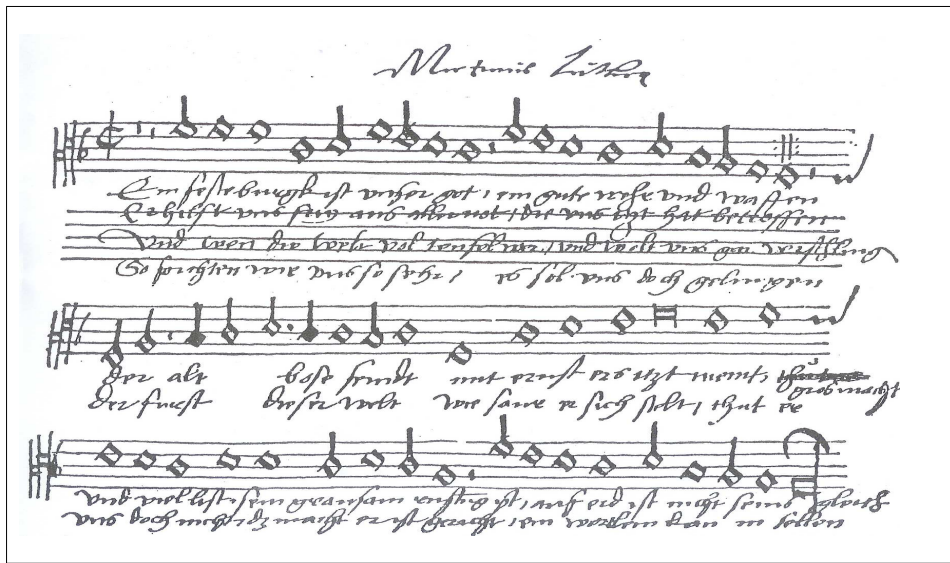 Martinus Luther
Ein feste burgk ist unser got, ein gute wehr und waffen
Er hilfft uns frey aus aller not, die uns itzt hat betroffen
Und wen die welt vol teufel wer, und wolt uns gar verschling
So furchten wir uns so sehr, es sol uns doch gelingen
der alt bose feindt mit ernst ers itzt meint,
gros macht
der furst dieser welt wie saur er sich stelt, thut er
und viel list, sein grausam rustug ist, auf erd ist nicht seins gleich
uns doch nicht, dz macht er ist gericht, ein wortlein kan in fellen